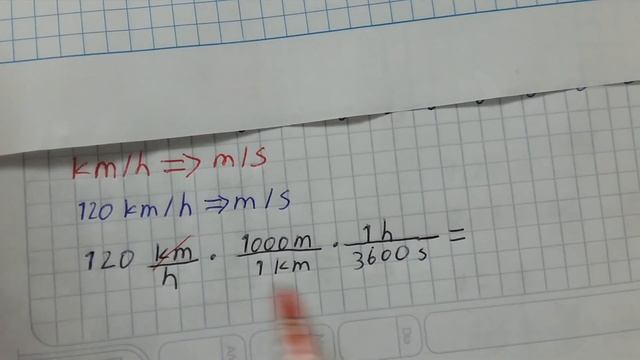 km/h => m/s
120 km/h => m/s
120 km/h · 1000m/1km · 1h/3600s =